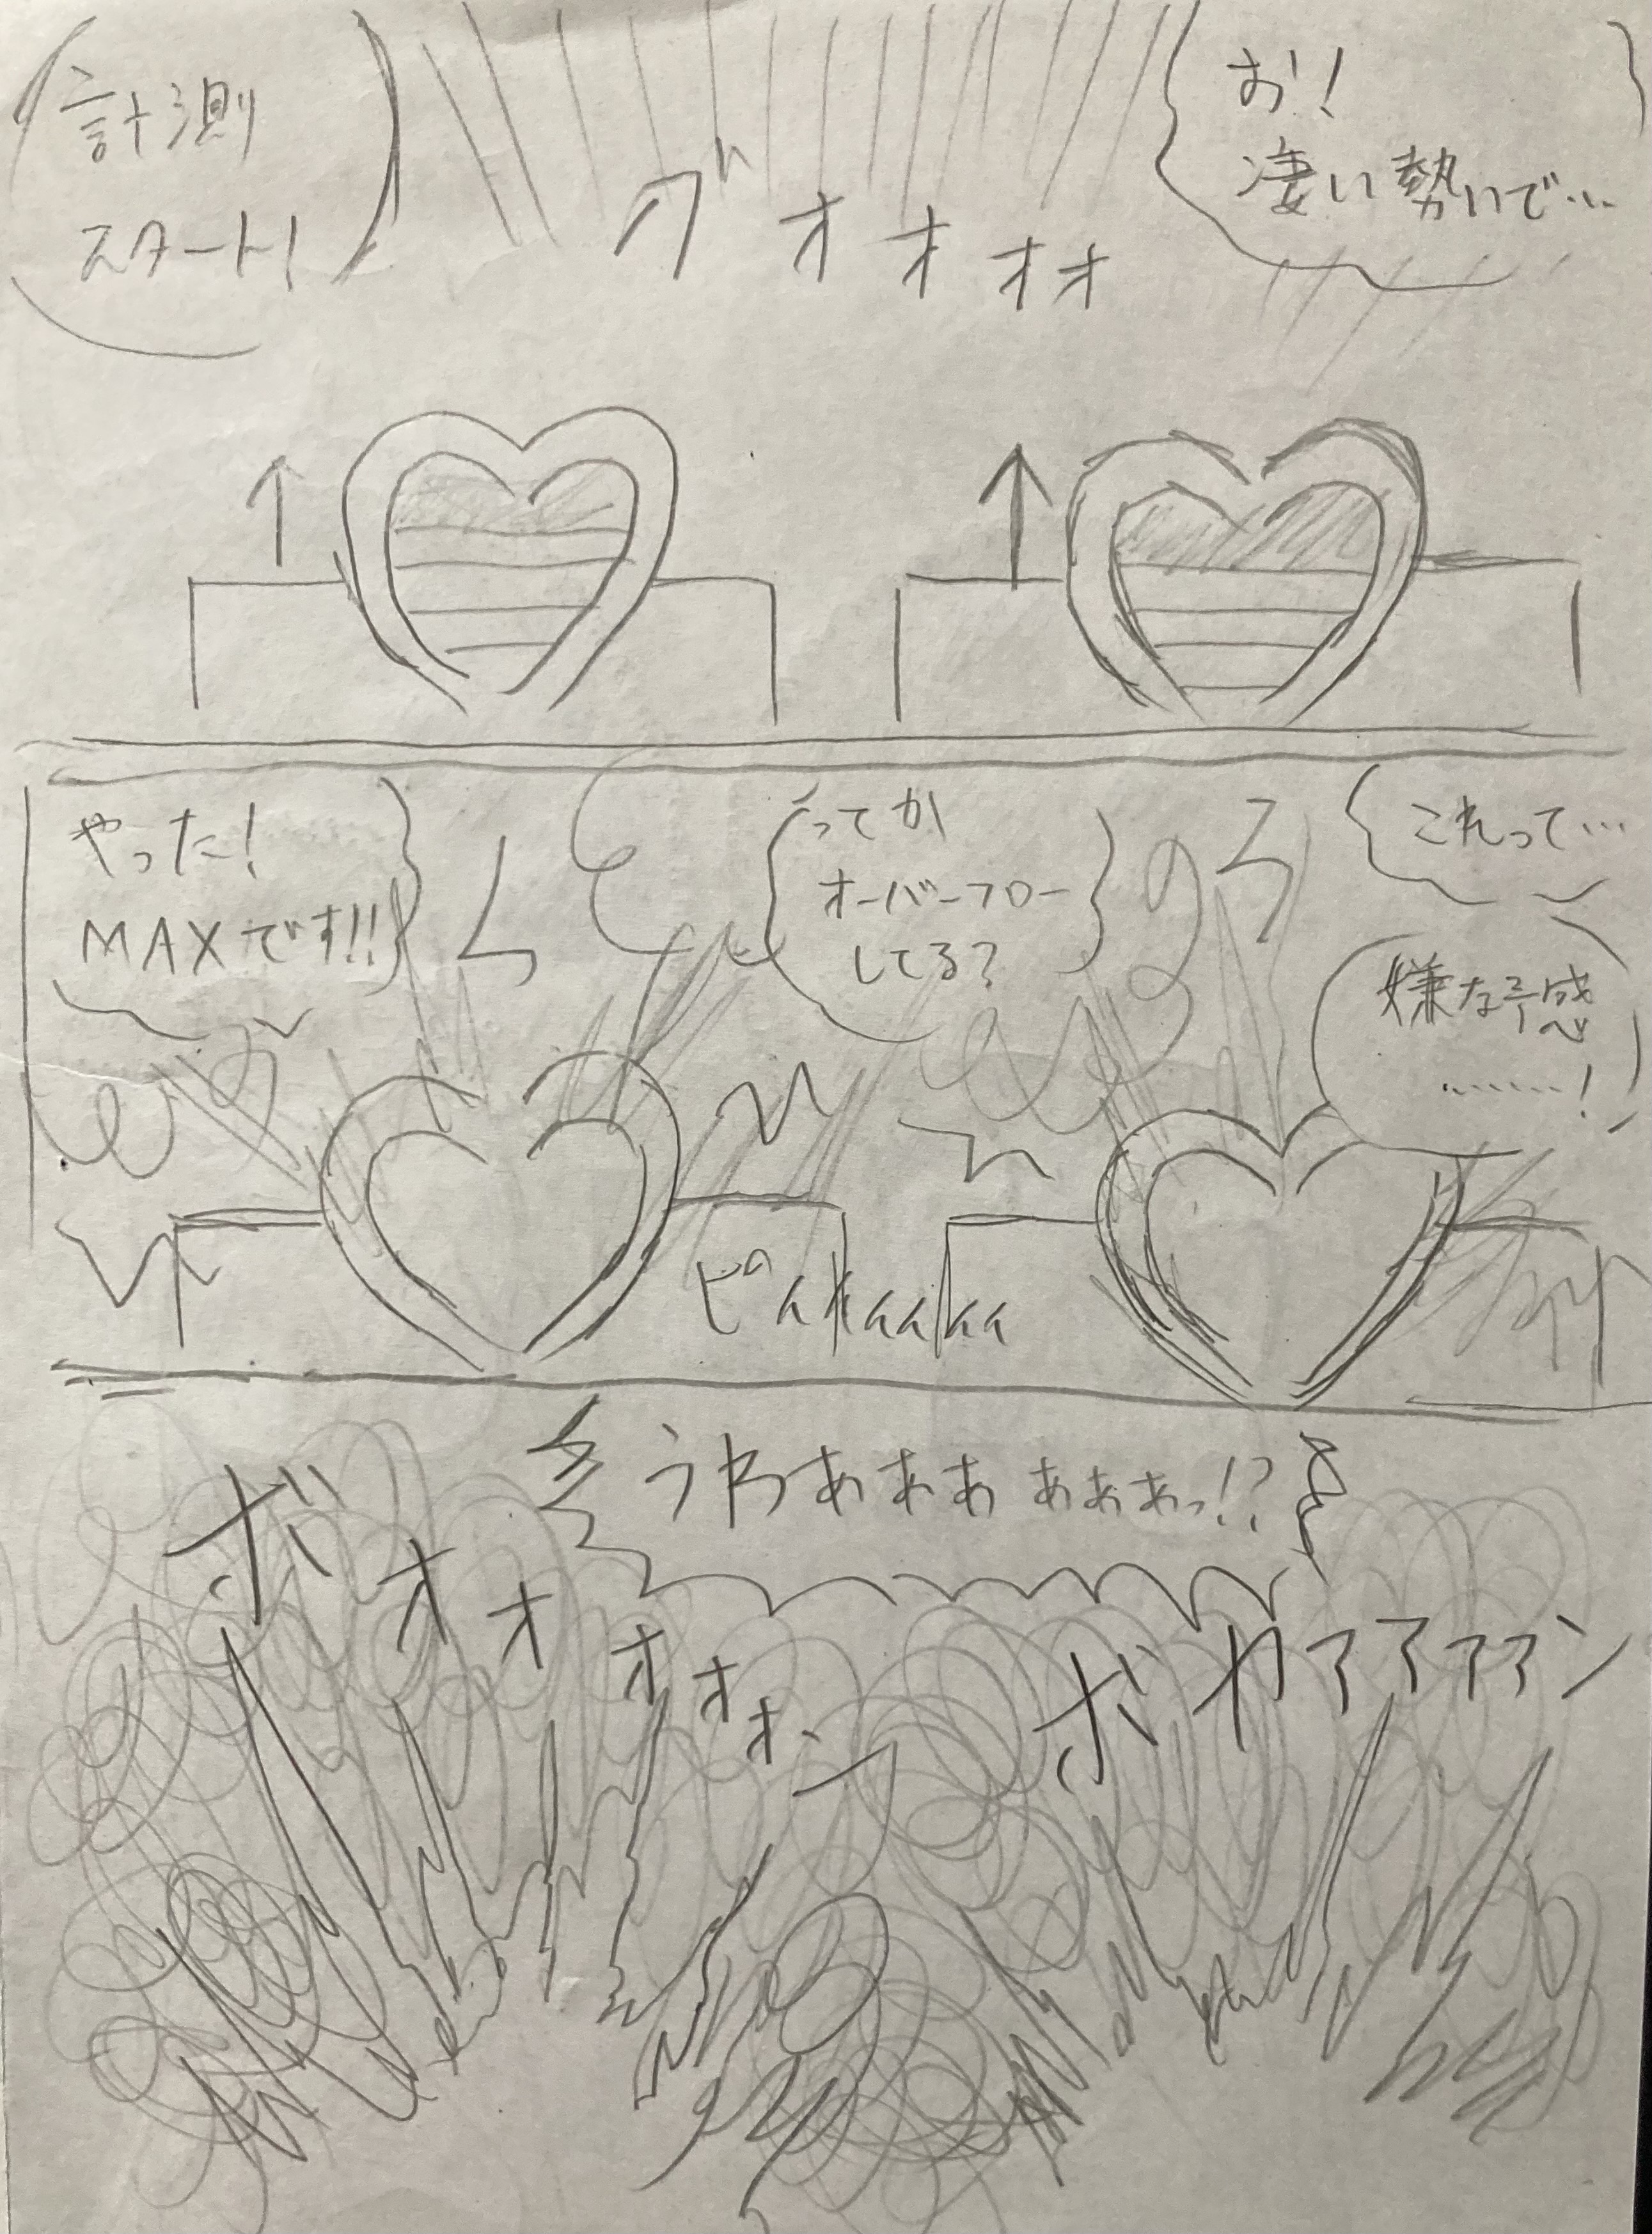 計測
スタート!
グオオオオ
お!
凄い勢いで…
やった!
MAXです!!
ってか
オーバーフロー
してる?
これって…
嫌な予感
……!
うわあああぁぁぁっ!?
ボオオオオォン
ボカアアァァン